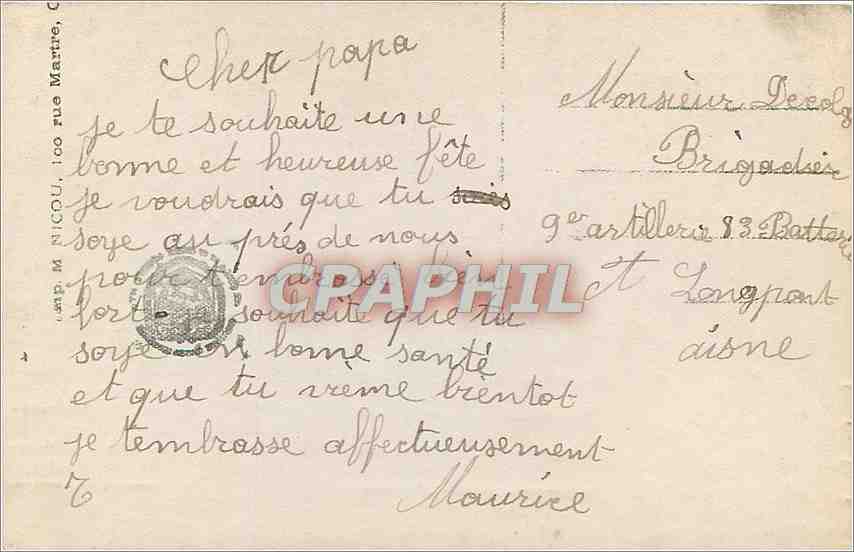 Cher papa
je te souhaite une
bonne et heureuse fête
je voudrais que tu suis
soye au prés de nous
pour t'embrassé bien
fort souhaite que tu
soye en bonne santé
et que tu vième bientot
je tembrasse affectueusement
Maurice
Monsieur
Brigadier
9er artillerie 83e Batterie
Longpont
aisne
Imp. M. NICOU, 100 rue Martre,
CPAPHIL